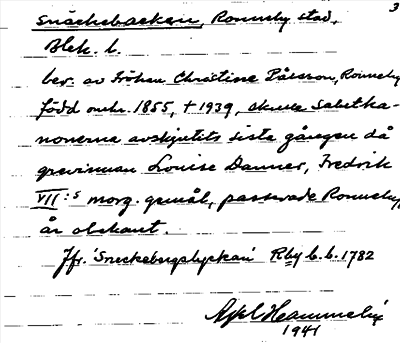 3
Snäckebacken, Ronneby stad,
Blek. l.
ber. av Fröken Christine Påsson, Ronneby
född omkr. 1855, † 1939, skulle Salutka-
nonerna avskjutits sista gången då
grevinnan Louise Danner, Fredrik
VII:s morg. gemål, passerade Ronneby,
år obekant.
Jfr. 'Sneckebergslyckan' Rby b.b. 1782
Axel Hammelin
1941